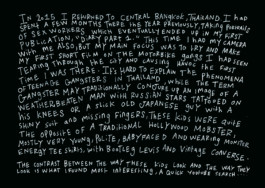 IN 2015 I RETURNED TO CENTRAL BANGKOK, THAILAND. I HAD
SPENT A FEW MONTHS THERE THE YEAR PREVIOUSLY, TAKING PORTRAITS
OF SEX WORKERS WHICH EVENTUALLY ENDED UP IN MY FIRST
PUBLICATION, "DIARY PART 2." THIS TIME I HAD MY CAMERA
WITH ME ALSO, BUT MY MAIN FOCUS WAS TO TRY AND MAKE
MY FIRST SHORT FILM ON THE MOTORBIKE GANGS I HAD SEEN
TEARING THROUGH THE CITY AND CAUSING HAVOC THE FIRST
TIME I WAS THERE. IT'S HARD TO EXPLAIN THE PHENOMENA
OF TEENAGE GANGSTERS IN THAILAND, WHILE THE TERM
GANGSTER MAY TRADITIONALLY CONJURE UP AN IMAGE OF A
WEATHERBEATEN MAN WITH RUSSIAN STARS TATTOOED ON
HIS KNEES OR A SLICK OLD JAPANESE GUY WITH A
SHINY SUIT AND MISSING FINGERS. THESE KIDS WERE QUITE
THE OPPOSITE OF A TRADITIONAL HOLLYWOOD MOBSTER,
MOSTLY VERY YOUNG, POLITE, BABYFACED AND WEARING MONSTER
ENERGY TEE SHIRTS, WITH BOOTLEG LEVIS AND VINTAGE CONVERSE.
THE CONTRAST BETWEEN THE WAY THESE KIDS LOOK AND THE WAY THEY
LOOK IS WHAT I FOUND MOST INTERESTING. A QUICK YOUTUBE SEARCH...